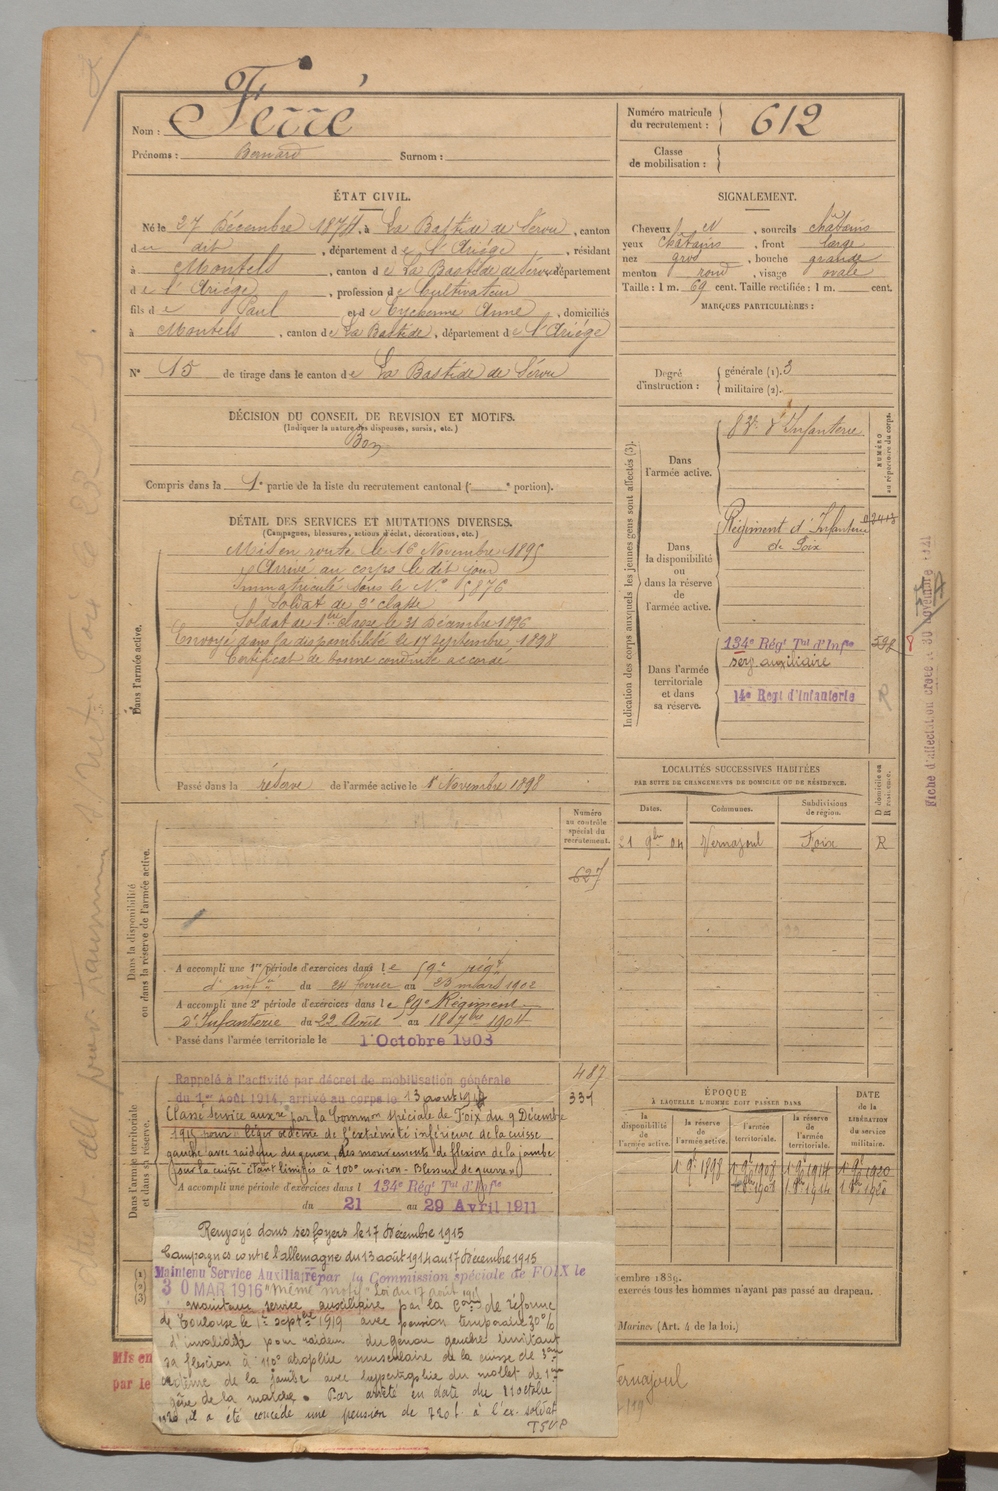 Nom : Ferré
Prénoms : Bernard Surnom :
Numéro matricule du recrutement : 612
Classe de mobilisation :
ÉTAT CIVIL.
Né le 27 Décembre 1874, à La Bastide de Sérou, canton
du dit, département de l'Ariège, résidant
à Montels, canton de La Bastide de Sérou, département
de l'Ariège, profession de Cultivateur
fils de Paul et de Eychenne Anne, domiciliés
à Montels, canton de La Bastide, département de l'Ariège
N° 15 de tirage dans le canton de La Bastide de Sérou
SIGNALEMENT.
Cheveux N, sourcils châtains
yeux châtains, front large
nez gros, bouche grande
menton rond, visage ovale
Taille : 1 m. 69 cent. Taille rectifiée : 1 m. cent.
MARQUES PARTICULIÈRES :
Degré d'instruction : générale (1). 3
militaire (2).
DÉCISION DU CONSEIL DE REVISION ET MOTIFS.
(Indiquer la nature des dispenses, sursis, etc.)
Bon
Compris dans la 1e partie de la liste du recrutement cantonal ( e portion).
DÉTAIL DES SERVICES ET MUTATIONS DIVERSES.
(Campagnes, blessures, actions d'éclat, décorations, etc.)
Dans l'armée active.
Mis en route le 16 Novembre 1895
Arrivé au corps le dit jour
Immatriculé sous le N° 5876
Soldat de 2e classe
Soldat de 1ère classe le 31 Décembre 1896
Envoyé dans la disponibilité le 17 septembre 1898
Certificat de bonne conduite accordé
Passé dans la réserve de l'armée active le 1er Novembre 1898
Indication des corps auxquels les jeunes gens sont affectés (3).
NUMÉRO au répertoire du corps.
Dans l'armée active. 83e d'Infanterie
Dans la disponibilité ou dans la réserve de l'armée active. Régiment d'Infanterie de Foix
Dans l'armée territoriale et dans sa réserve. 134e Régt Tal d'Infie 598
serv auxiliaire
14e Regt d'Infanterie R
Fiche d'affectation créée le 30 novembre 1921
LOCALITÉS SUCCESSIVES HABITÉES
PAR SUITE DE CHANGEMENTS DE DOMICILE OU DE RÉSIDENCE.
Dates. Communes. Subdivisions de région. D domicile ou R résidence.
21 9bre 04 Vernajoul Foix R
Dans la disponibilité ou dans la réserve de l'armée active.
Numéro au contrôle spécial du recrutement.
627
A accompli une 1re période d'exercices dans le 59e régt
d'infie du 24 février au 23 mars 1902
A accompli une 2e période d'exercices dans le 59e Régiment
d'Infanterie du 22 Août au 18 7bre 1904
Passé dans l'armée territoriale le 1 Octobre 1908
487
331
Dans l'armée territoriale et dans sa réserve.
Rappelé à l'activité par décret de mobilisation générale
du 1er Août 1914, arrivé au corps le 13 août 1914
Classé Service auxre par la Common spéciale de Foix du 9 Décembre
1915 pour "léger œdème de l'extrémité inférieure de la cuisse
gauche avec raideur du genou, des mouvements de flexion de la jambe
sur la cuisse étant limités à 100° environ. Blessure de guerre"
A accompli une période d'exercices dans l 134e Régt Tal d'Infie
du 21 au 29 Avril 1911
Renvoyé dans ses foyers le 17 Décembre 1915
Campagnes contre l'allemagne du 13 août 1914 au 17 Décembre 1915
Maintenu Service Auxiliaire par la Commission spéciale de FOIX le
30 MAR 1916 "Même motif"
maintenu service auxiliaire par la Com de réforme
de Toulouse le 1er septbre 1919 avec pension temporaire 30%
d'invalidité pour raideur du genou gauche limitant
sa flexion à 110° atrophie musculaire de la cuisse de 3cm
œdème de la jambe avec hypertrophie du mollet de 1cm
gêne de la marche. Par arrêté en date du 11 octobre
1920, il a été concédé une pension de 720 f à l'ex-soldat
TSVP
ÉPOQUE
À LAQUELLE L'HOMME DOIT PASSER DANS
la disponibilité de l'armée active. la réserve de l'armée active. l'armée territoriale. la réserve de l'armée territoriale.
DATE de la LIBÉRATION du service militaire.
1 9e 1898 1 9e 1908 1 9e 1914 1 9e 1920
1 8e 1908 1 8e 1914 1 8e 1920
cembre 1889.
exercés tous les hommes n'ayant pas passé au drapeau.
Marine. (Art. 4 de la loi.)
Mis en
par le
Vernajoul